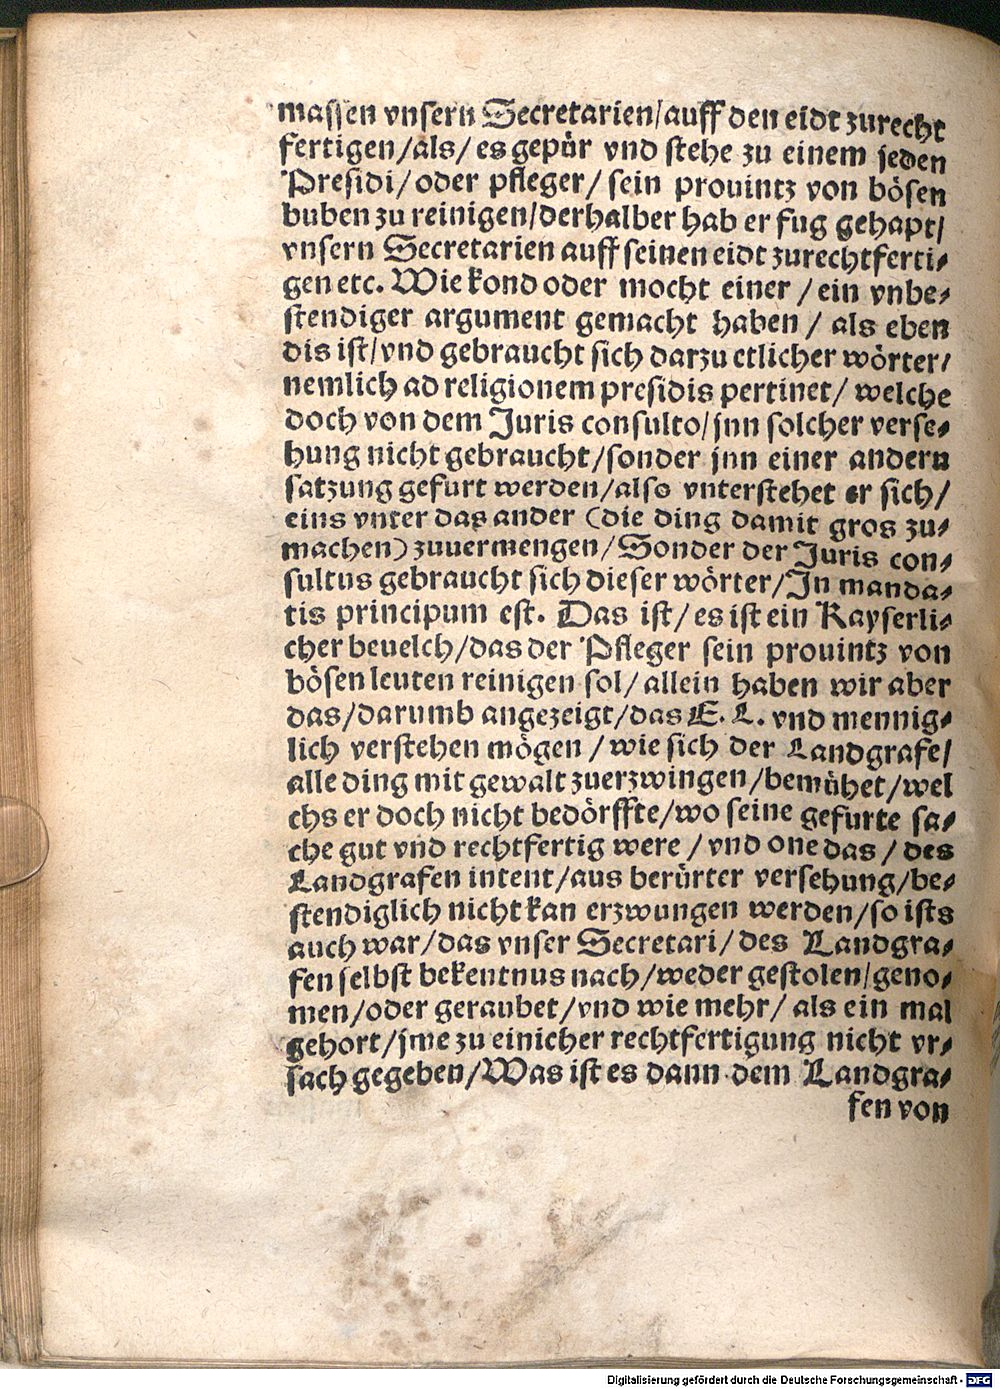 massen vnsern Secretarien/auff den eidt zurecht
fertigen/als/ es gepür vnd stehe zu einem jeden
Presidi/oder pfleger/ sein prouintz von bösen
buben zu reinigen/derhalber hab er fug gehapt/
vnsern Secretarien auff seinen eidt zurechtferti⸗
gen etc. Wie kond oder mocht einer / ein vnbe⸗
stendiger argument gemacht haben / als eben
dis ist/vnd gebraucht sich darzu etlicher wörter/
nemlich ad religionem presidis pertinet/ welche
doch von dem Juris consulto/jnn solcher verse⸗
hung nicht gebraucht/sonder jnn einer andern
satzung gefurt werden/also vnterstehet er sich/
eins vnter das ander (die ding damit gros zu⸗
machen) zuuermengen/Sonder der Juris con⸗
sultus gebraucht sich dieser wörter/In manda⸗
tis principum est. Das ist/ es ist ein Kayserli⸗
cher beuelch/das der Pfleger sein prouintz von
bösen leuten reinigen sol/ allein haben wir aber
das/darumb angezeigt/das E. L. vnd mennig⸗
lich verstehen mögen /wie sich der Landgrafe/
alle ding mit gewalt zuerzwingen/bemühet/wel
chs er doch nicht bedörffte/wo seine gefurte sa⸗
che gut vnd rechtfertig were / vnd one das / des
Landgrafen intent/aus berürter versehung/be⸗
stendiglich nicht kan erzwungen werden/so ists
auch war/das vnser Secretari/des Landgra⸗
fen selbst bekentnus nach/weder gestolen/geno⸗
men/oder geraubet/vnd wie mehr/ als ein mal
gehort/jme zu einicher rechtfertigung nicht vr⸗
sach gegeben/Was ist es dann dem Landgra⸗
fen von
Digitalisierung gefördert durch die Deutsche Forschungsgemeinschaft - DFG